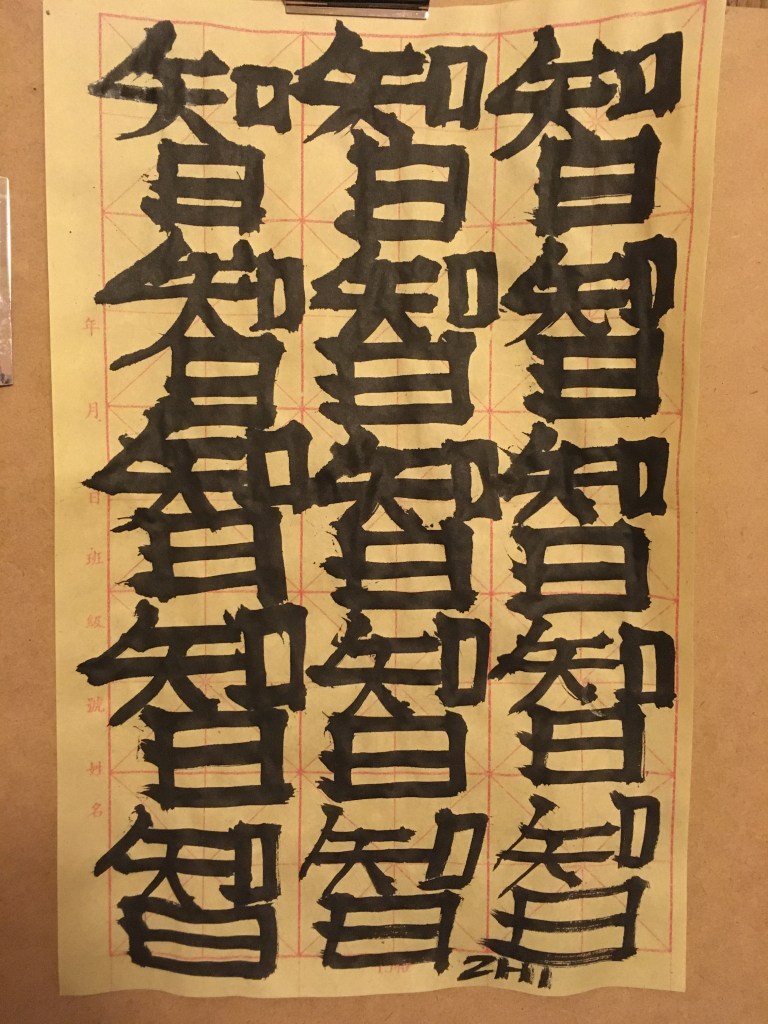 智智智
智智智
智智智
智智智
智智智
年月日班級號姓名
ZHI